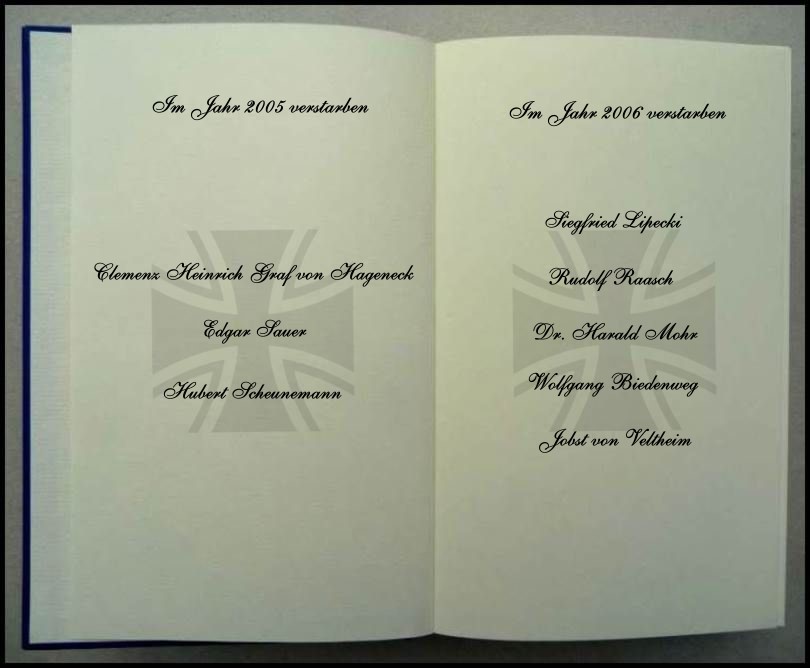 Im Jahr 2005 verstarben
Clemenz Heinrich Graf von Hageneck
Edgar Sauer
Hubert Scheunemann
Im Jahr 2006 verstarben
Siegfried Lipecki
Rudolf Raasch
Dr. Harald Mohr
Wolfgang Biedenweg
Jobst von Veltheim